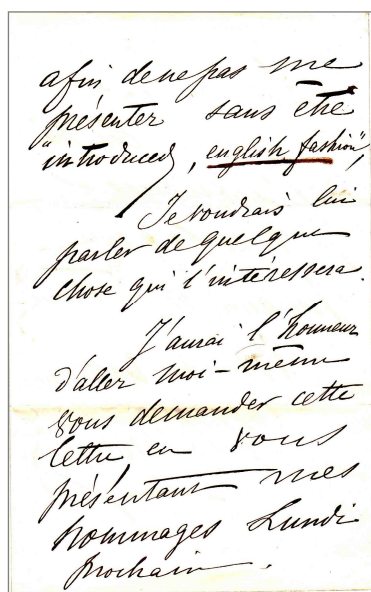 afin de ne pas me
présenter sans être
"introduced, english fashion",
Je voudrais lui
parler de quelque
chose qui l'intéressera.
J'aurai l'honneur
d'aller moi-même
vous demander cette
lettre en vous
présentant mes
hommages Lundi
prochain.